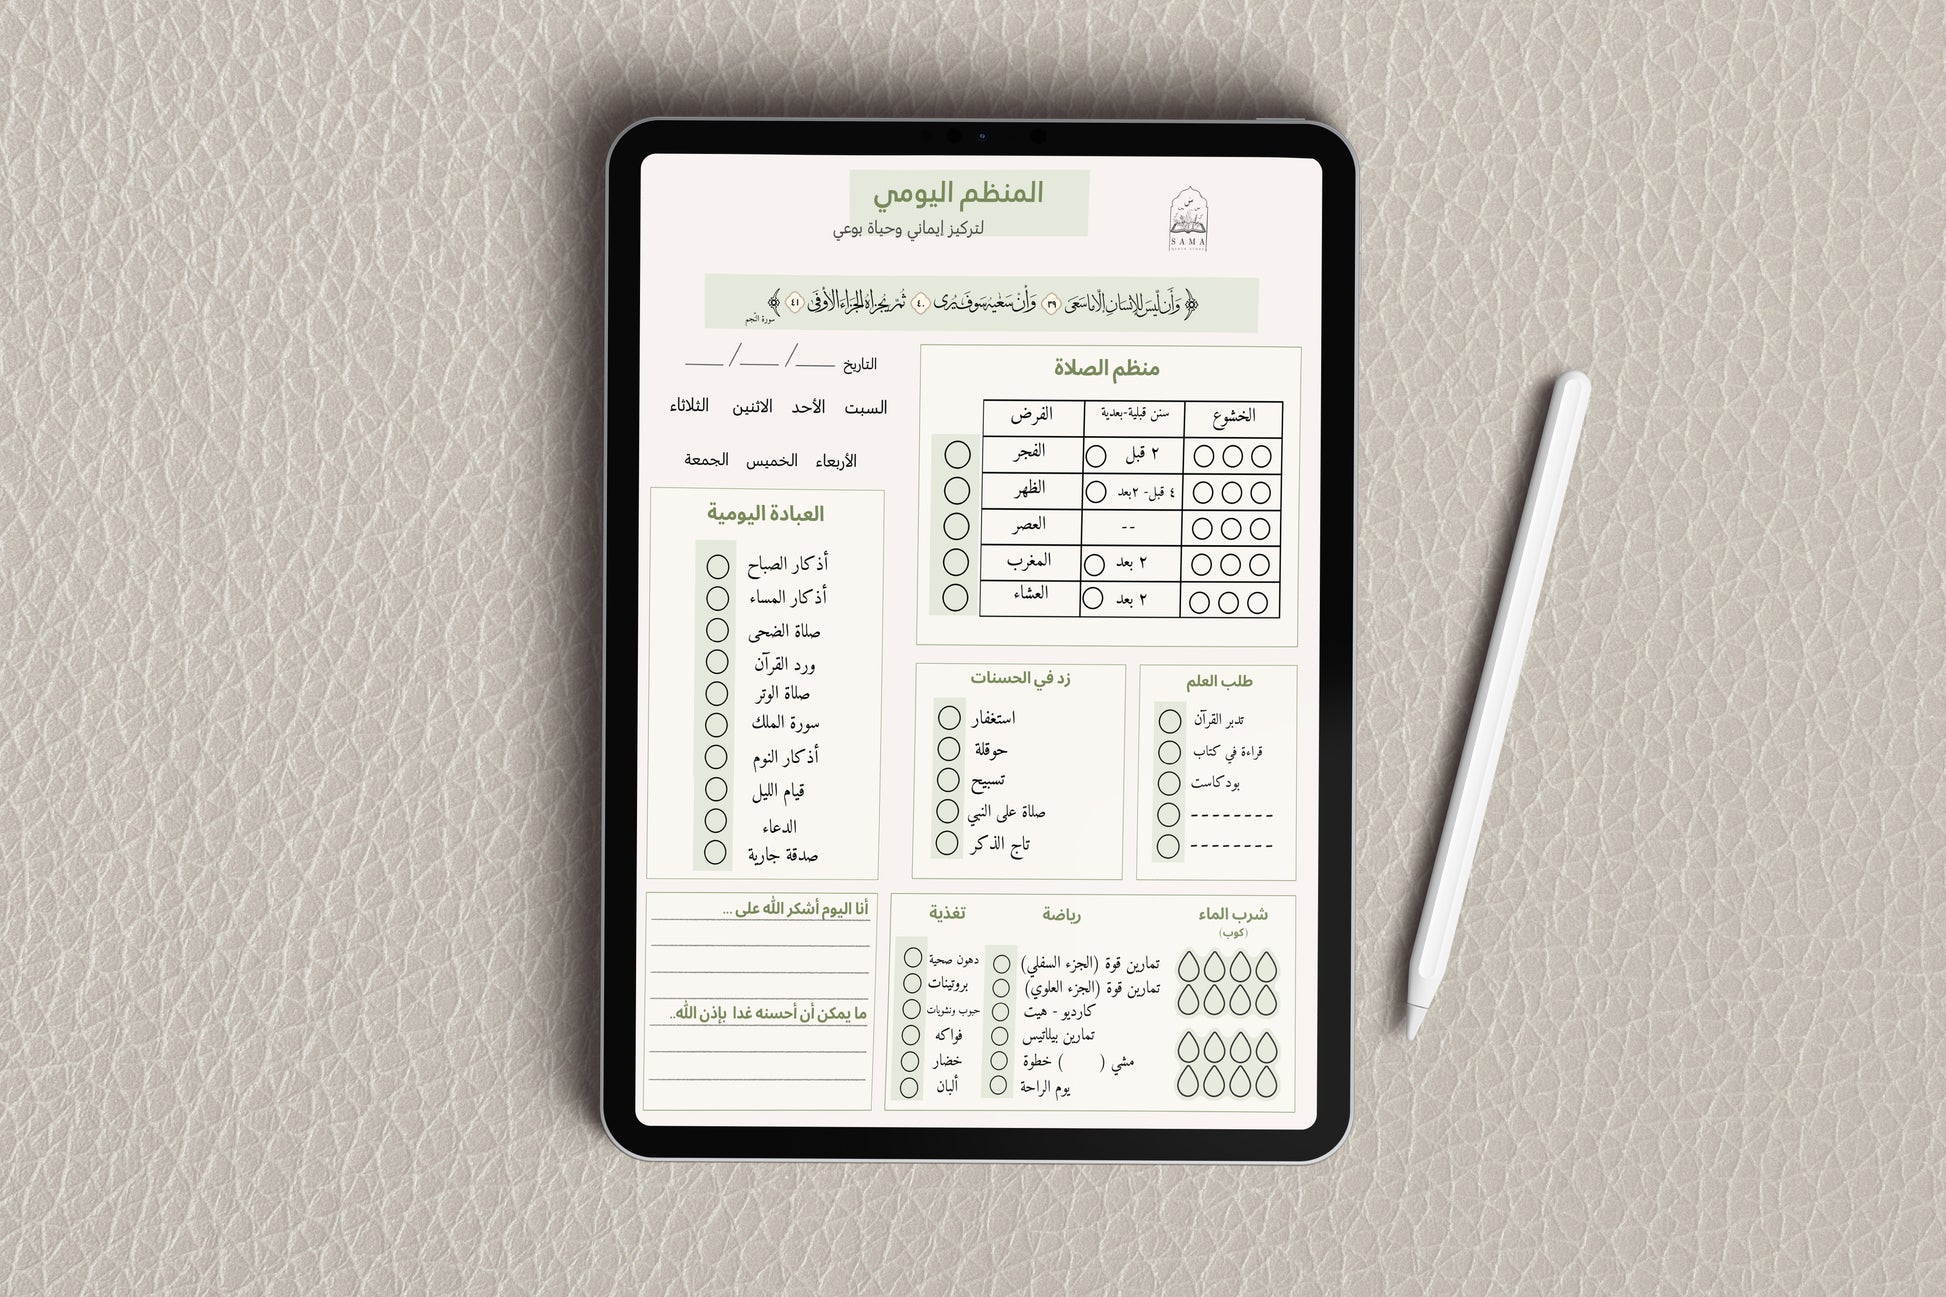 المنظم اليومي
لتركيز إيماني وحياة بوعي
SAMA
﴿وَأَن لَّيْسَ لِلْإِنسَانِ إِلَّا مَا سَعَى ٣٩ وَأَنَّ سَعْيَهُ سَوْفَ يُرَى ٤٠ ثُمَّ يُجْزَاهُ الْجَزَاءَ الْأَوْفَى ٤١﴾
سورة النجم
منظم الصلاة
الخشوع سنن قبلية-بعدية الفرض
٢ قبل الفجر
٤ قبل- ٢بعد الظهر
-- العصر
٢ بعد المغرب
٢ بعد العشاء
التاريخ ___ / ___ / ___
السبت الأحد الاثنين الثلاثاء
الأربعاء الخميس الجمعة
العبادة اليومية
أذكار الصباح
أذكار المساء
صلاة الضحى
ورد القرآن
صلاة الوتر
سورة الملك
أذكار النوم
قيام الليل
الدعاء
صدقة جارية
طلب العلم
تدبر القرآن
قراءة في كتاب
بودكاست
--------
--------
زد في الحسنات
استغفار
حوقلة
تسبيح
صلاة على النبي
تاج الذكر
شرب الماء
(كوب)
رياضة
تمارين قوة (الجزء السفلي)
تمارين قوة (الجزء العلوي)
كارديو - هيت
تمارين بيلاتيس
مشي (      ) خطوة
يوم الراحة
تغذية
دهون صحية
بروتينات
حبوب ونشويات
فواكه
خضار
ألبان
أنا اليوم أشكر الله على ...
ما يمكن أن أحسنه غدا بإذن الله..